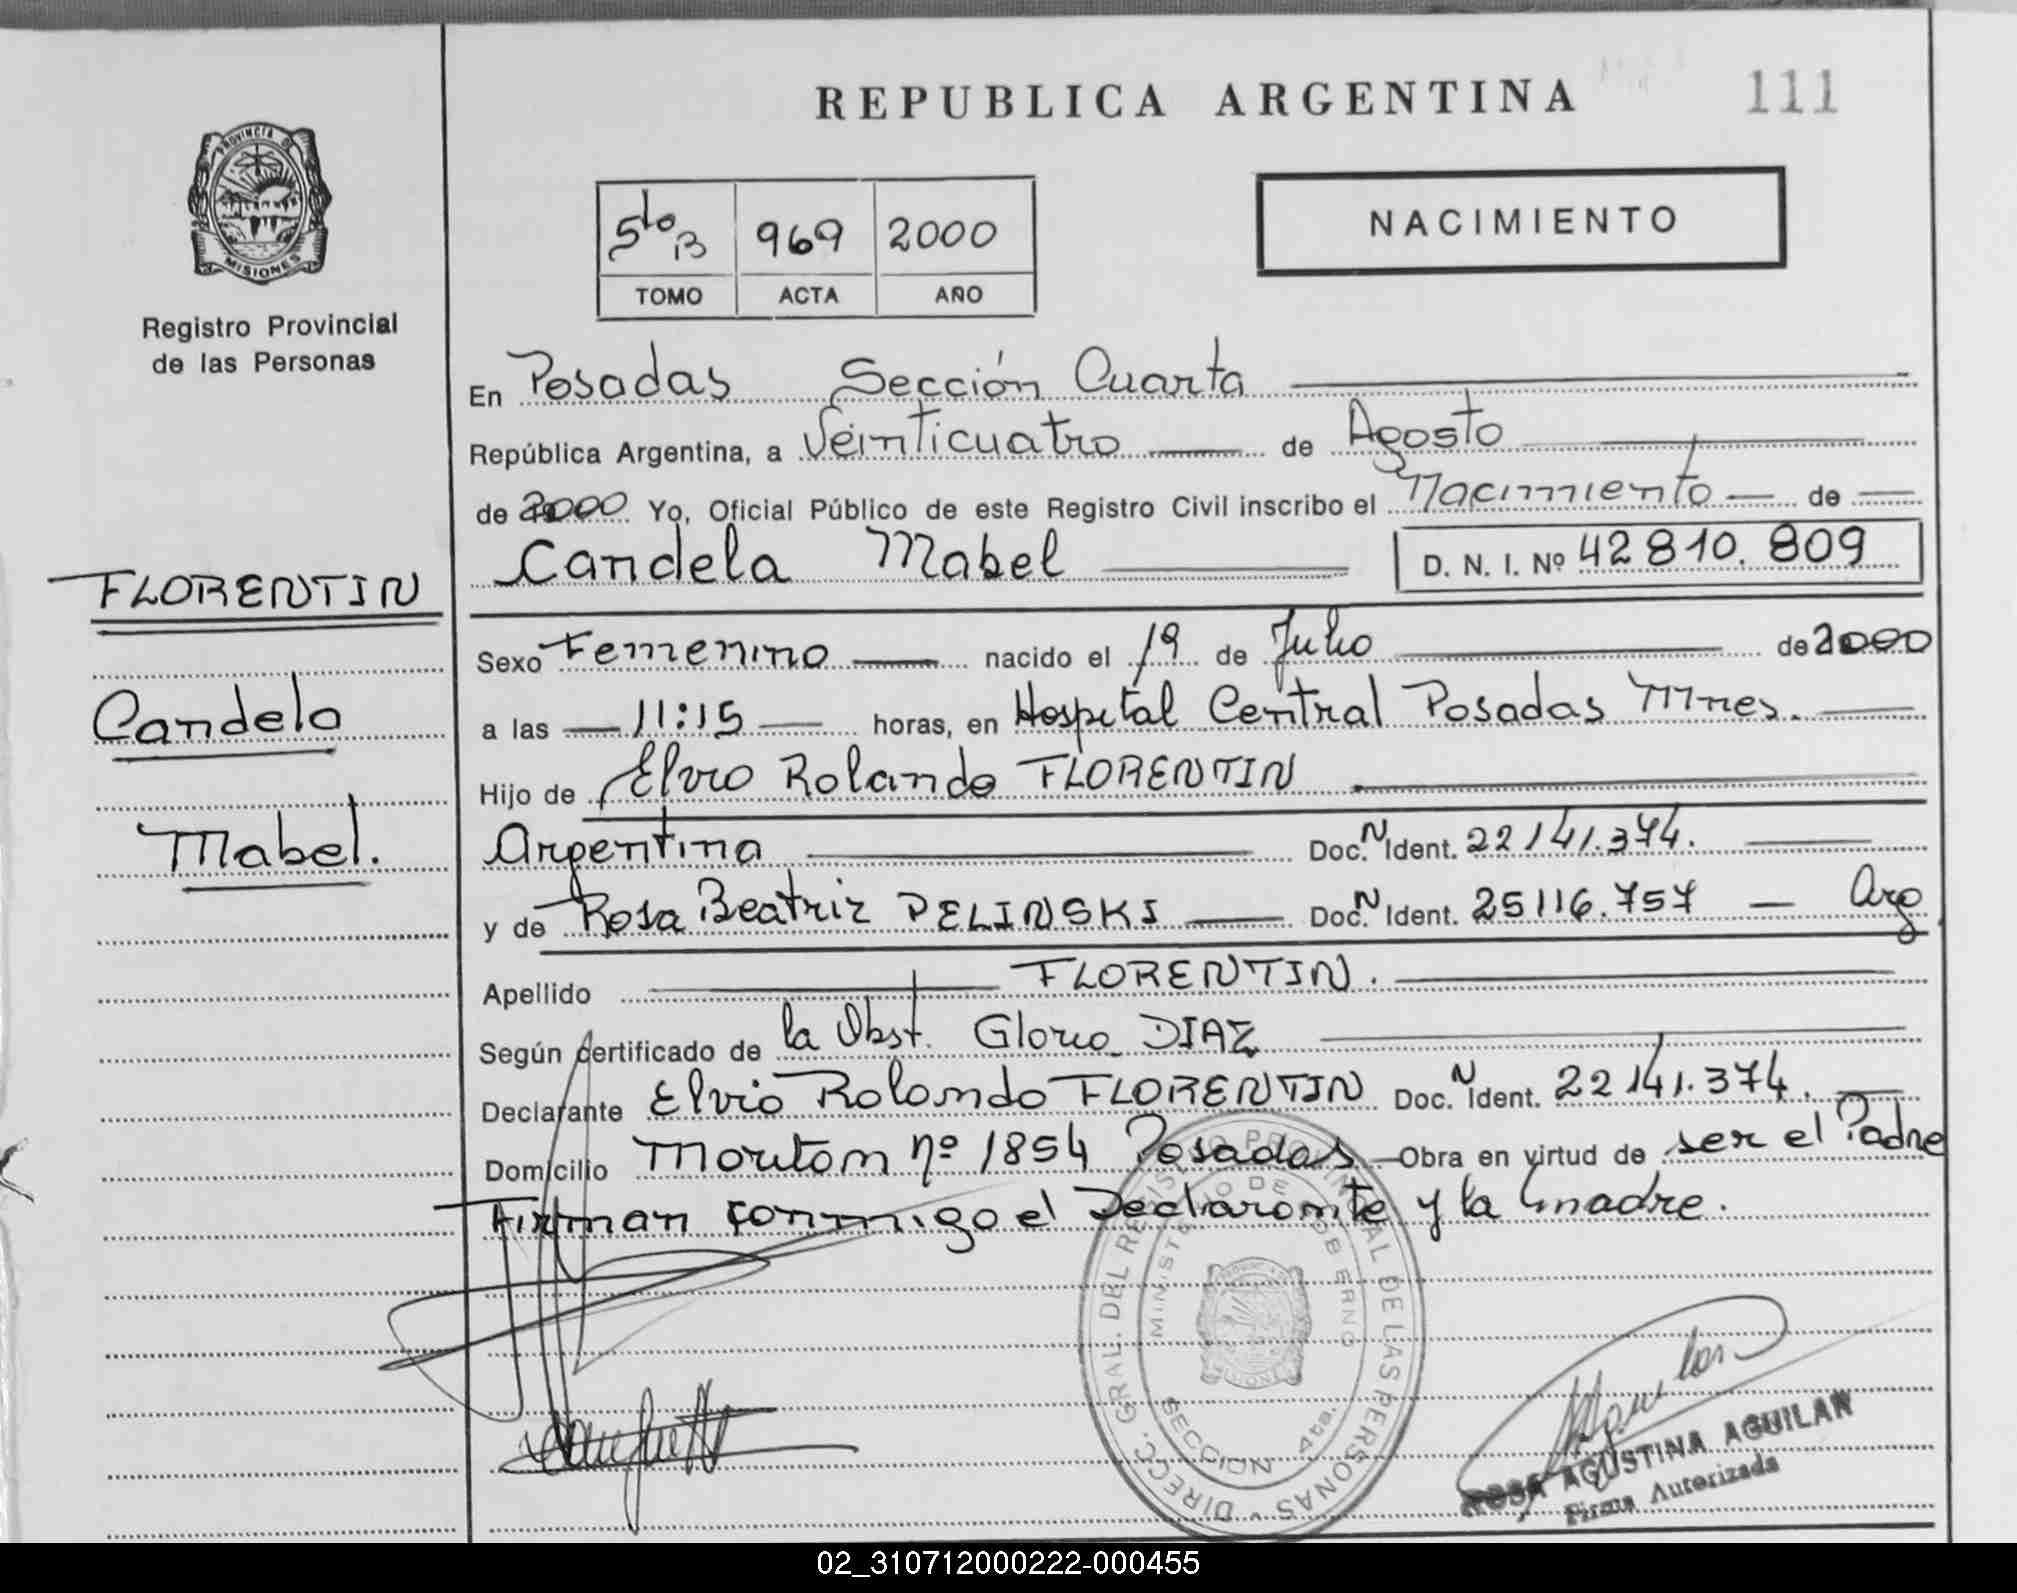 REPUBLICA ARGENTINA
111
PROVINCIA DE
MISIONES
Registro Provincial
de las Personas
5to B 969 2000
TOMO ACTA AÑO
NACIMIENTO
En Posadas Sección Cuarta
República Argentina, a Veinticuatro de Agosto
de 2000 Yo, Oficial Público de este Registro Civil inscribo el Nacimiento de
Candela Mabel
D. N. I. Nº 42810.809
FLORENTIN
Candela
Mabel.
Sexo Femenino nacido el 19 de Julio de 2000
a las 11:15 horas, en Hospital Central Posadas Mnes.
Hijo de Elvio Rolando FLORENTIN
Argentina Doc. N Ident. 22141.374.
y de Rosa Beatriz PELINSKI Doc. N Ident. 25116.757 Arg
Apellido FLORENTIN.
Según certificado de la Obst. Gloria DIAZ
Declarante Elvio Rolando FLORENTIN Doc. N Ident. 22141.374.
Domicilio nº 1854 Posadas Obra en virtud de ser el Padre
Firman conmigo el Declarante y la madre.
DIRECC. GRAL. DEL REGISTRO PROVINCIAL DE LAS PERSONAS
MINISTERIO DE GOBIERNO
SECCION 4ta.
ROSA AGUSTINA AGUILAR
Firma Autorizada
02_310712000222-000455